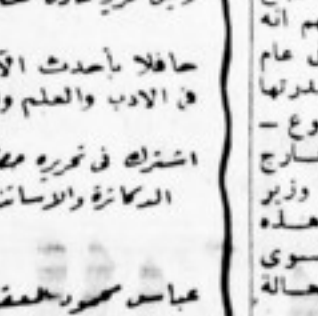 حافلا بأحدث الآ
فى الادب والعلم و
اشترك فى تحريره
الدكاترة والاساتذ
عباس محمود العقـ
هم انه
عام
وع —
ـارج
وزير
هـذه
سوى
حـالة